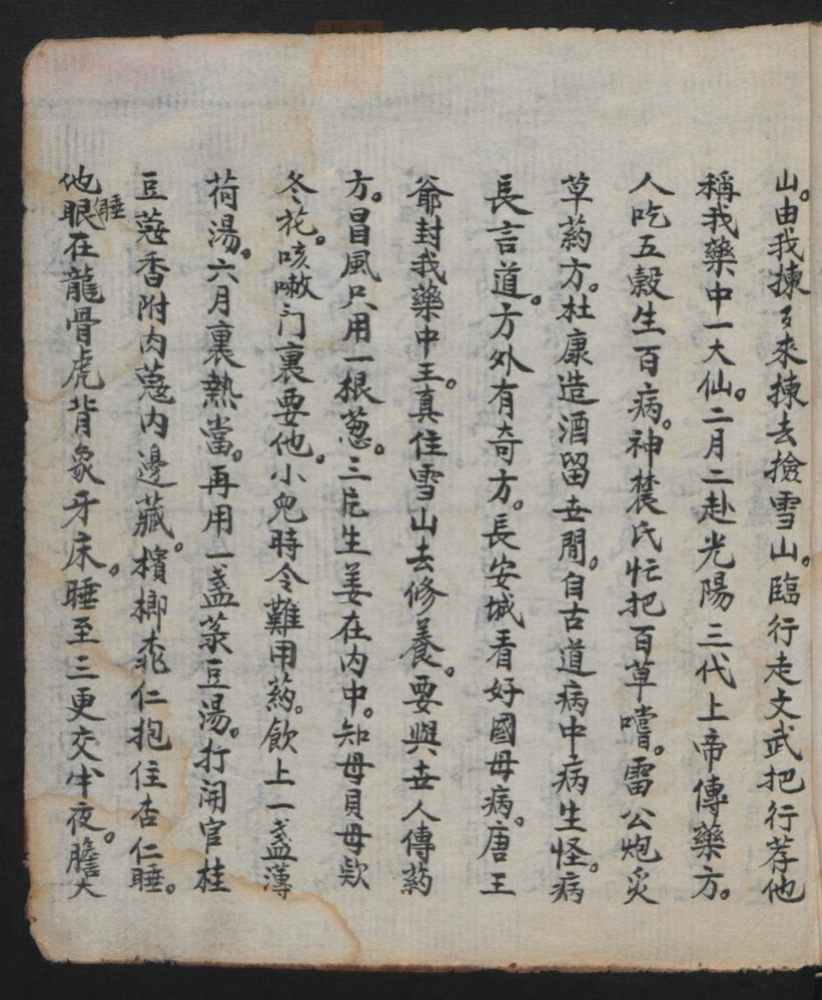 山。由我揀々來揀去撿雪山。臨行走文武把行荐他
稱我藥中一大仙。二月二赴光陽三代上帝傳藥方。
人吃五穀生百病。神農氏忙把百草嚐。雷公炮炙
草葯方。杜康造酒留世間。自古道病中病生怪。病
長言道。方外有奇方。長安城看好國母病。唐王
爺封我藥中王。真住雪山去修養。要與世人傳葯
方。冒風只用一根葱。三片生姜在内中。知母貝母欵
冬花。咳嗽门裏要他。小兒時令難用葯。飲上一盞薄
荷湯。六月裏熱當。再用一盞菉豆湯。打開官桂
豆蔻香附肉蔻内邊藏。檳榔桃仁抱住杏仁睡。
他睡眼在龍骨虎背象牙床。睡至三更交半夜。膽大